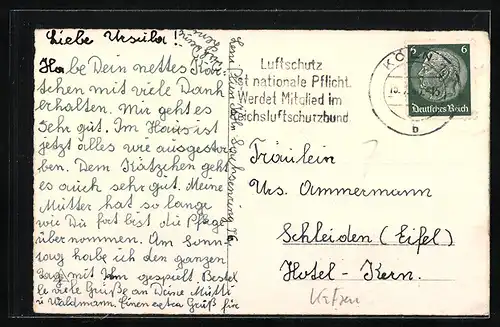 Liebe Ursula!
Habe Dein nettes Kört-
chen mit viele Dank
erhalten. Mir geht es
sehr gut. Im Haus ist
jetzt alles wie ausgestor-
ben. Dem Kätzchen geht
es auch sehr gut. Meine
Mutter hat so lange
wie Du fort bist die Pflege
übernommen. Am Sonn-
tag habe ich den ganzen
Tag mit ihm gespielt. Bestel-
le viele Grüße an Deine Mutti
u Waldmann. Einen extra Gruß für
Luftschutz
ist nationale Pflicht.
Werdet Mitglied im
Reichsluftschutzbund
KÖLN
b
6 6
Deutsches Reich
Fräulein
Urs. Ammermann
Schleiden (Eifel)
Hotel-Kern.